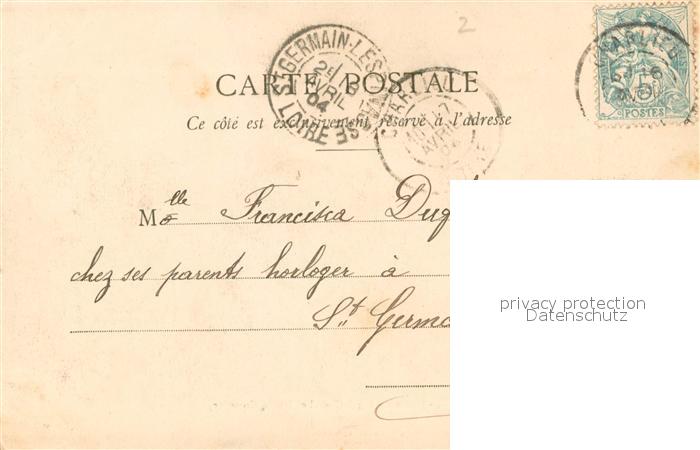 2
CARTE POSTALE
Ce côté est exclusivement réservé à l'adresse
ST GERMAIN-LES
2E
AVRIL
04
LOIRE
AVRIL
5
POSTES
Mlle Francisca Duq
chez ses parents horloger à
St Germa
privacy protection
Datenschutz